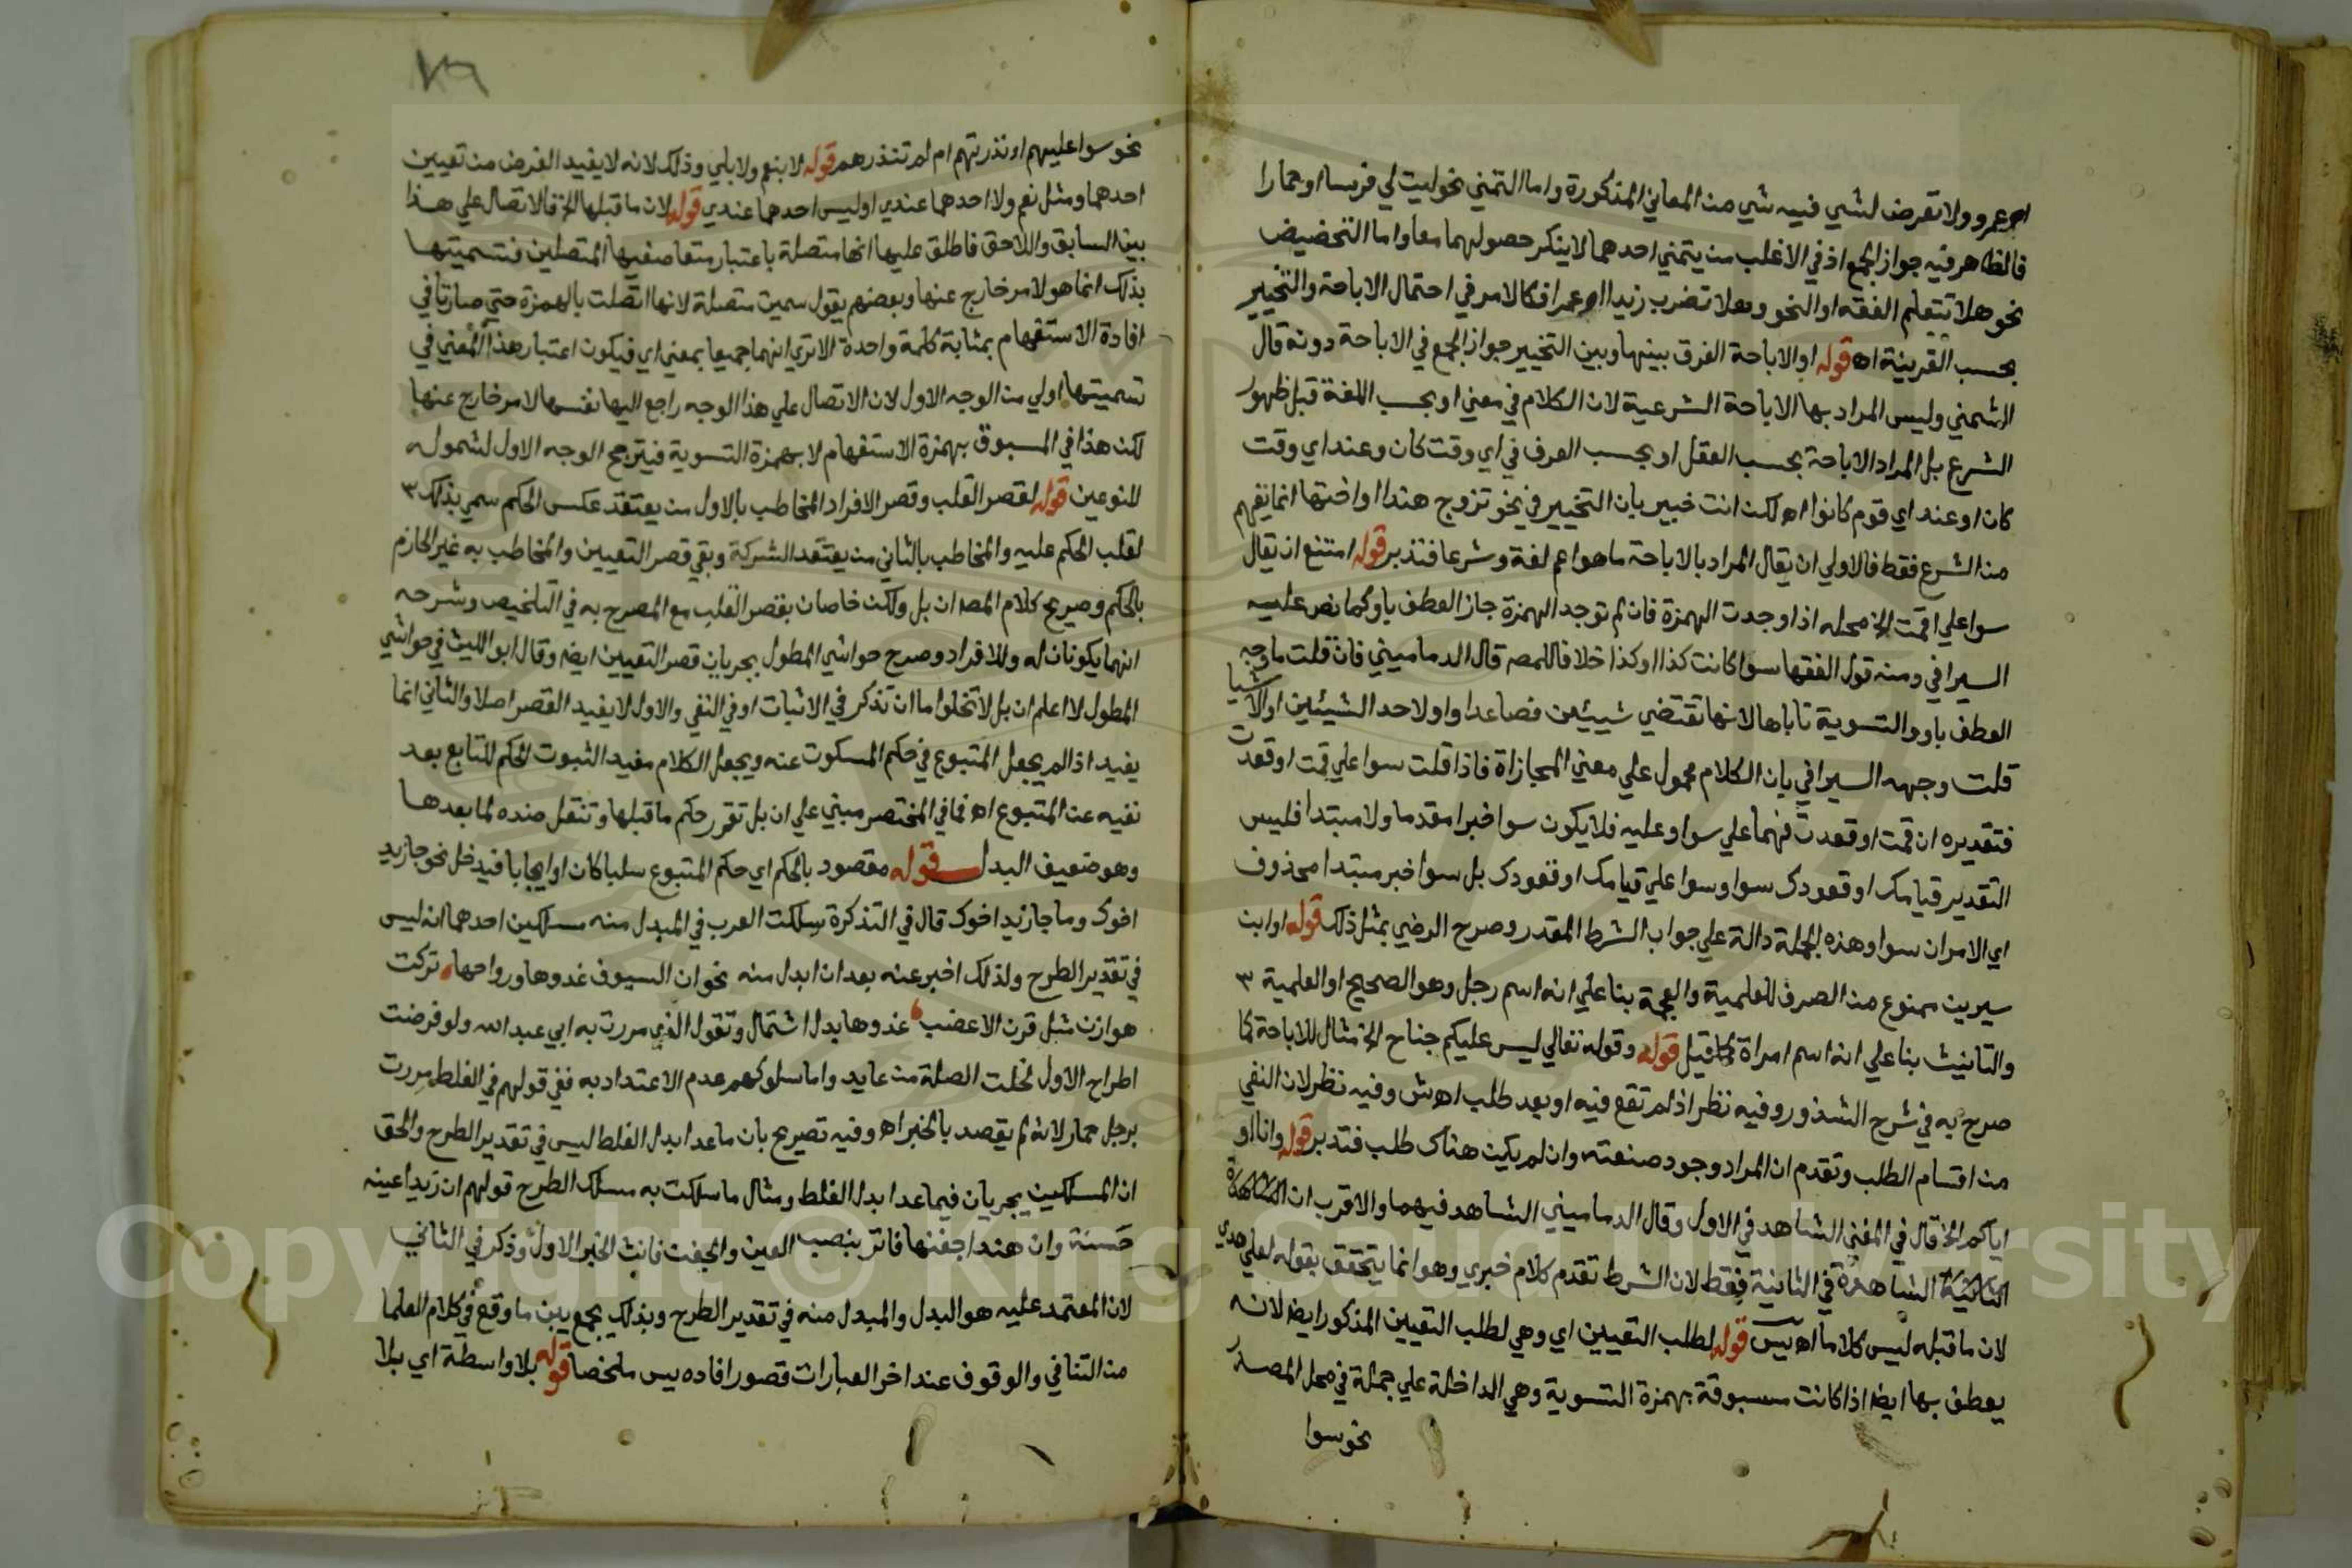 ام عمرو ولا تعرض لشي فيه شي من المعاني المذكورة واما التمني نحو ليت لي فرسا او حمارا
فالظاهر فيه جواز الجمع اذ في الاغلب من يتمني احدهما لا ينكر حصولهما معا واما التحضيض
نحو هلا تتعلم الفقه او النحو وهلا تضرب زيدا او عمرا فكالامر في احتمال الاباحة والتخيير
بحسب القرينة اه قوله او الاباحة الفرق بينها وبين التخيير جواز الجمع في الاباحة دونه قال
الشمني وليس المراد بها الاباحة الشرعية لان الكلام في معني او بحسب اللغة قبل ظهور
الشرع بل المراد الاباحة بحسب العقل او بحسب العرف في اي وقت كان وعند اي وقت
كان او عند اي قوم كانوا اه لكن انت خبير بان التخيير في نحو تزوج هندا او اختها انما يفهم
من الشرع فقط فالاولي ان يقال المراد بالاباحة ما هو اعم لغة وشرعا فتدبر قوله امتنع ان يقال
سوا علي اقمت الخ محله اذا وجدت الهمزة فان لم توجد الهمزة جاز العطف باو كما نص عليه
السيرافي ومنه قول الفقها سوا كانت كذا او كذا خلافا للمصه قال الدماميني فان قلت ما وجه
العطف باو والتسوية تاباها لانها تقتضي شيئين فصاعدا واو لاحد الشيئين او الاشيا
قلت وجهه السيرافي بان الكلام محمول علي معني المجازاة فاذا قلت سوا علي قمت او قعدت
فتقديره ان قمت او قعدت فهما علي سوا وعليه فلا يكون سوا خبرا مقدما ولا مبتدا فليس
التقدير قيامك او قعودك سوا وسوا علي قيامك او قعودك بل سوا خبر مبتدا محذوف
اي الامران سوا وهذه الجملة دالة علي جواب الشرط المقدر وصرح الرضي بمثل ذلك قوله او ابن
سيرين ممنوع من الصرف للعلمية والعجمة بنا علي انه اسم رجل وهو الصحيح او العلمية
والتانيث بنا علي انه اسم امراة كما قيل قوله وقوله تعالي ليس عليكم جناح الخ مثال للاباحة كما
صرح به في شرح الشذور وفيه نظر اذ لم تقع فيه او بعد طلب اه ش وفيه نظر لان النفي
من اقسام الطلب وتقدم ان المراد وجود صنعته وان لم يكن هناك طلب فتدبر قوله وانا او
اياكم الخ قال في المغني الشاهد في الاولي وقال الدماميني الشاهد فيهما والاقرب ان
الشاهد في الثانية فقط لان الشرط تقدم كلام خبري وهو انما يتحقق بقوله لعلي هدي
لان ما قبله ليس كلاما اه يس قوله لطلب التعيين اي وهي لطلب التعيين المذكور ايضا لانه
يعطف بها ايضا اذا كانت مسبوقة بهمزة التسوية وهي الداخلة علي جملة في محل المصدر
نحو سوا
نحو سوا عليهم اانذرتهم ام لم تنذرهم قوله لا بنعم ولا بلي وذلك لانه لا يفيد الغرض من تعيين
احدهما ومثل نعم ولا احدهما عندي او ليس احدهما عندي قوله لان ما قبلها الخ فالاتصال علي هذا
بين السابق واللاحق فاطلق عليها انها متصلة باعتبار متعاطفيها المتصلين فتسميتها
بذلك انما هو لامر خارج عنها وبعضهم يقول سميت متصلة لانها اتصلت بالهمزة حتي صارتا في
افادة الاستفهام بمثابة كلمة واحدة الا تري انهما جميعا بمعني اي فيكون اعتبار هذا المعني في
تسميتها اولي من الوجه الاول لان الاتصال علي هذا الوجه راجع اليها نفسها لا لامر خارج عنها
لكن هذا في المسبوق بهمزة الاستفهام لا بهمزة التسوية فيترجح الوجه الاول لشموله
للنوعين قوله لقصر القلب وقصر الافراد المخاطب بالاول من يعتقد عكس الحكم سمي بذلك
لقلب الحكم عليه والمخاطب بالثاني من يعتقد الشركة وبقي قصر التعيين والمخاطب به غير الجازم
بالحكم وصريح كلام المصه ان بل ولكن خاصان بقصر القلب مع المصرح به في التلخيص وشرحه
انهما يكونان له وللافراد وصرح حواشي المطول بجريان قصر التعيين ايضا وقال ابو الليث في حواشي
المطول لا اعلم ان بل لا تخلوا ما ان تذكر في الاثبات او في النفي والاول لا يفيد القصر اصلا والثاني انما
يفيد اذا لم يجعل المتبوع في حكم المسكوت عنه ويجعل الكلام مفيد الثبوت الحكم للتابع بعد
نفيه عن المتبوع اه فما في المختصر مبني علي ان بل تقرر حكم ما قبلها وتنقل ضده لما بعدها
وهو ضعيف البدل قوله مقصود بالحكم اي حكم المتبوع سلبا كان او ايجابا فيدخل نحو جا زيد
اخوك وما جا زيد اخوك قال في التذكرة سلكت العرب في المبدل منه مسلكين احدهما انه ليس
في تقدير الطرح ولذلك اخبر عنه بعد ان ابدل منه نحو ان السيوف غدوها ورواحها تركت
هوازن مثل قرن الاعضب غدوها بدل اشتمال وتقول الذي مررت به ابي عبد الله ولو فرضت
اطراح الاول لخلت الصلة من عايد واما سلوكهم عدم الاعتداد به ففي قولهم في الغلط مررت
برجل حمار لانه لم يقصد بالخبر اه وفيه تصريح بان ما عدا بدل الغلط ليس في تقدير الطرح والحق
ان المسلكين يجريان فيما عدا بدل الغلط ومثال ما سلكت به مسلك الطرح قولهم ان زيدا عينه
حسنة وان هندا جفنها فاتر بنصب العين والجفن فانث الخبر الاول وذكر في الثاني
لان المعتمد عليه هو البدل والمبدل منه في تقدير الطرح وبذلك يجمع بين ما وقع في كلام العلما
من التنافي والوقوف عند اخر العبارات قصور افاده يس ملخصا قوله بلا واسطة اي بلا
Copyright © King Saud University